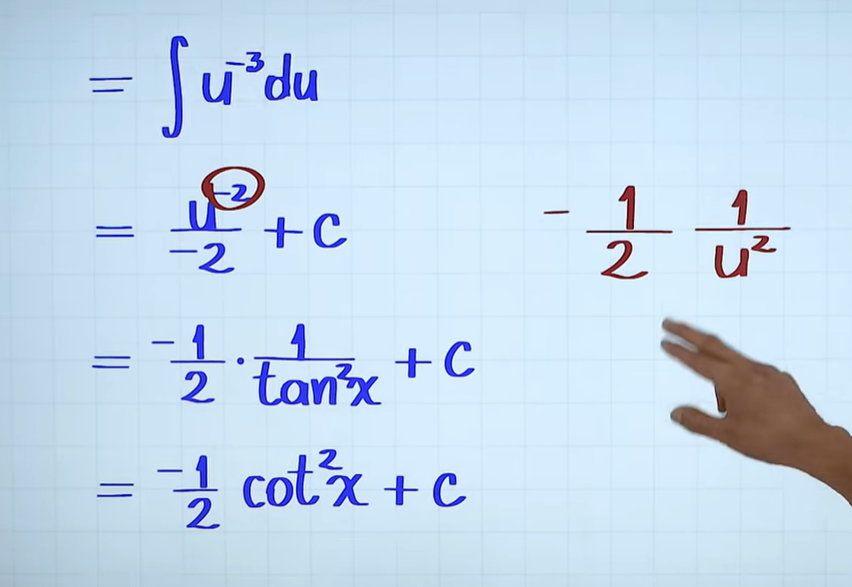 = ∫ u⁻³ du
= u⁻²/-2 + c
- 1/2 1/u²
= -1/2 · 1/tan²x + c
= -1/2 cot²x + c